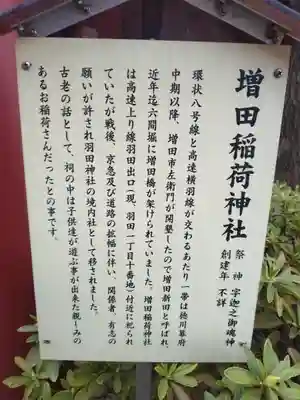 増田稲荷神社
祭神 宇迦之御魂神
創建年 不詳
環状八号線と高速横羽線が交わるあたり一帯は徳川幕府
中期以降、増田市左衛門が開墾したので増田新田と呼ばれ、
近年迄六間堀に増田橋が架けられていました。増田稲荷神社
は高速上り線羽田出口(現、羽田一丁目十番地)付近に祀られ
ていたが戦後、京急及び道路の拡幅に伴い、関係者、有志の
願いが許され羽田神社の境内社として移されました。
古老の話として、祠の中は子供達が遊ぶ事が出来た親しみの
あるお稲荷さんだったとの事です。